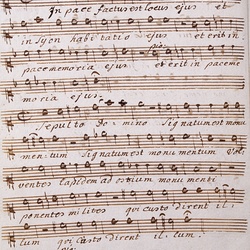 In pace factus est locus ejus et
in Syon habitatio ejus et erit in
pace memoria ejus et erit in pace me
moria ejus.
Sepulto Domino signatum est monu
mentum signatum est monumentum Vol
ventes lapidem ad ostium monumenti
ponentes milites qui custodirent il:
lum qui custodirent illum.